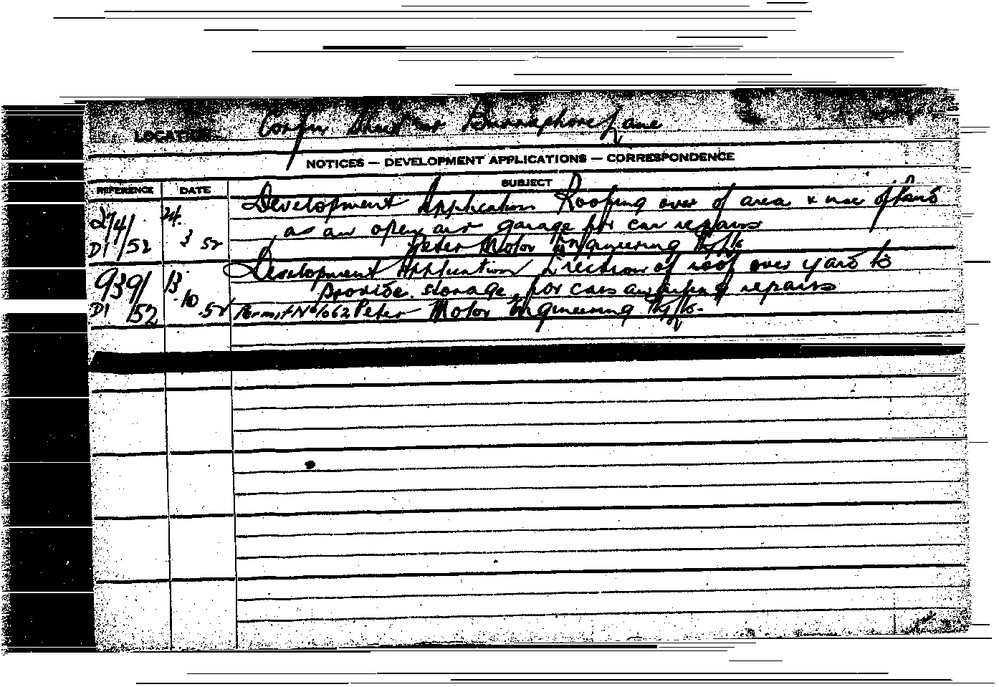 LOCATION Street Lane
NOTICES — DEVELOPMENT APPLICATIONS — CORRESPONDENCE
REFERENCE DATE SUBJECT
Development Application Roofing over of area & use of land
274/ 24. as an open air garage for car repairs
D1/52 3 52 Peter Motor Engineering Pty Ltd
Development Application Erection of roof over yard to
939/ 13. provide storage for cars awaiting repairs
D1/52 10.52 Permit No 1062 Peter Motor Engineering Pty Ltd.